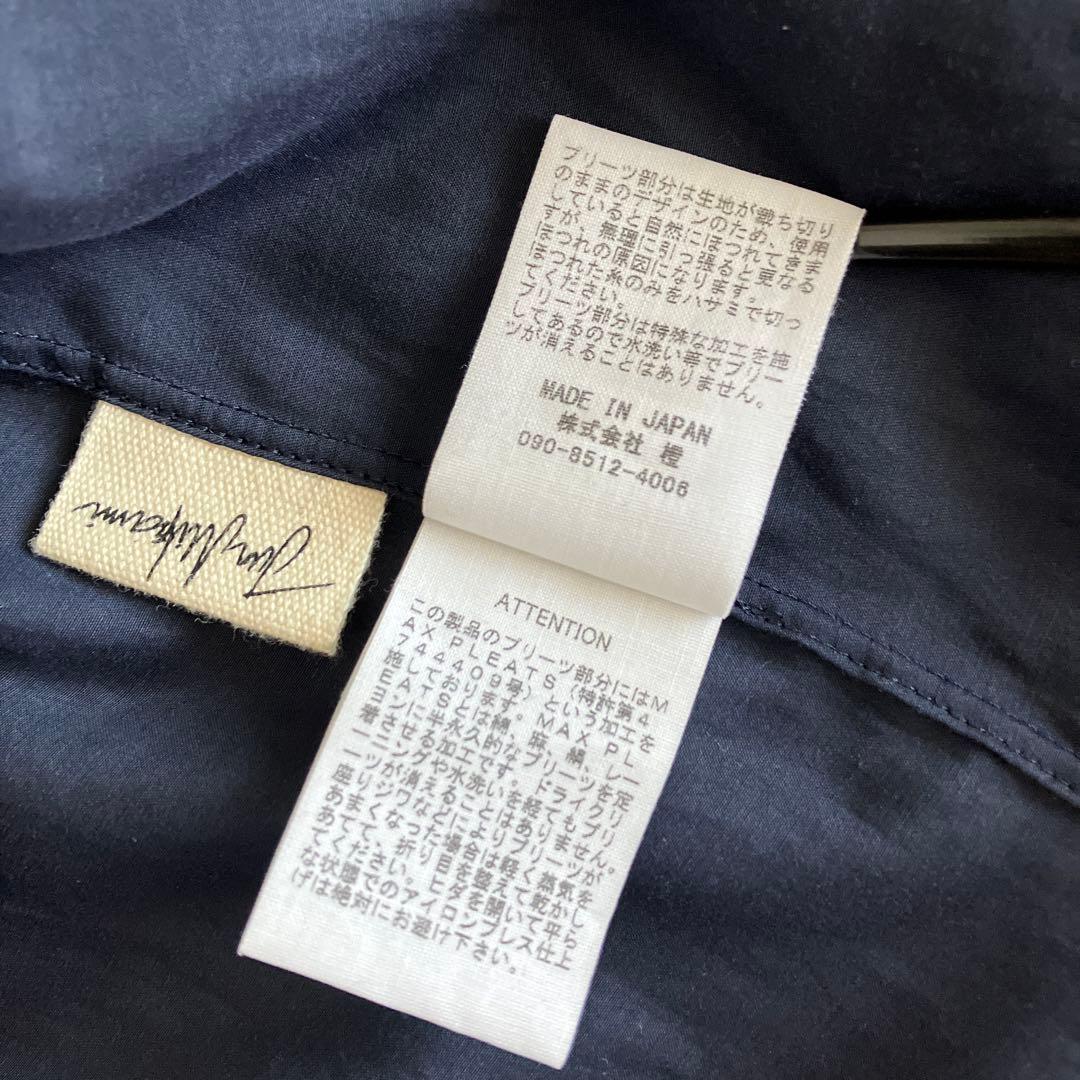 プリーツ部分は生地が断ち切り
のままのデザインのため、使用
していると自然にほつれてきま
すが、無理に引っ張ると更なる
ほつれの原因になります。
ほつれた糸のみをハサミで切っ
てください。
プリーツ部分は特殊な加工を施
してあるので水洗い等でプリー
ツが消えることはありません。
MADE IN JAPAN
株式会社 橙
090-8512-4006
Jun Mikami
ATTENTION
この製品のプリーツ部分にはM
AX PLEATS（特許第4
744409号）という加工を
施しております。MAX PL
EATSとは綿、麻、絹、レー
ヨンに半永久的なプリーツを定
着させる加工です。ドライクリ
ーニングや水洗いを経てもプリ
ーツが消えることはありません。
座りジワなどによりプリーツが
あまくなった場合は軽く蒸気を
あてて、折り目を整えて乾かし
てください。ヒダを開いて平ら
な状態でのアイロンプレス仕上
げは絶対にお避け下さい。